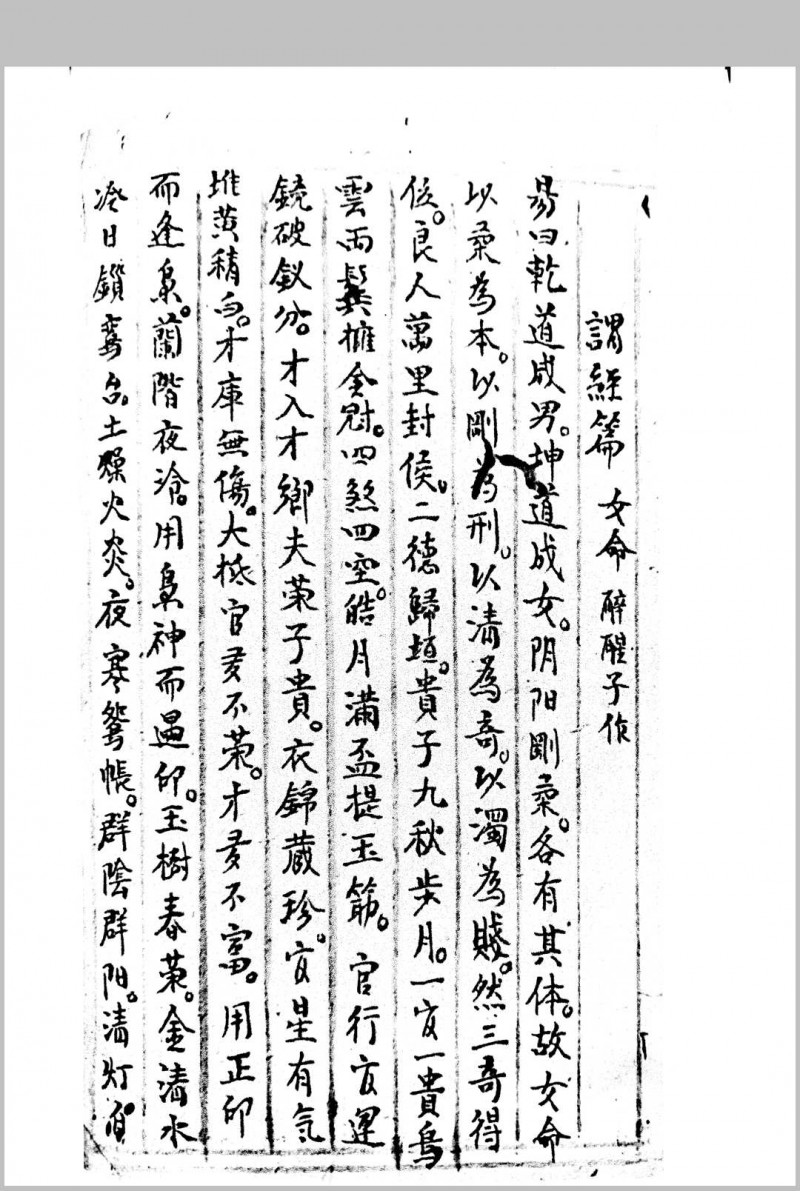 謂経篇 女命 醉醒子作
易曰乾道成男。坤道成女。阴阳剛柔。各有其体。故女命
以柔為本。以剛為刑。以清為奇。以濁為賤。然三奇得
位。良人萬里封侯。二德歸垣。貴子九秋步月。一官一貴烏
雲両鬢擁金冠。四煞四空。皓月滿盃提玉筯。官行官運
鏡破釵分。才入才鄉夫荣子貴。衣錦蔵珍。官星有気
堆黄積白。才庫無傷。大抵官多不荣。才多不富。用正印
而逢梟。蘭階夜冷。用梟神而遇印。玉樹春荣。金清水
冷日鎖鸞台。土燥火炎。夜寒鴛帳。群陰群阳。清灯自